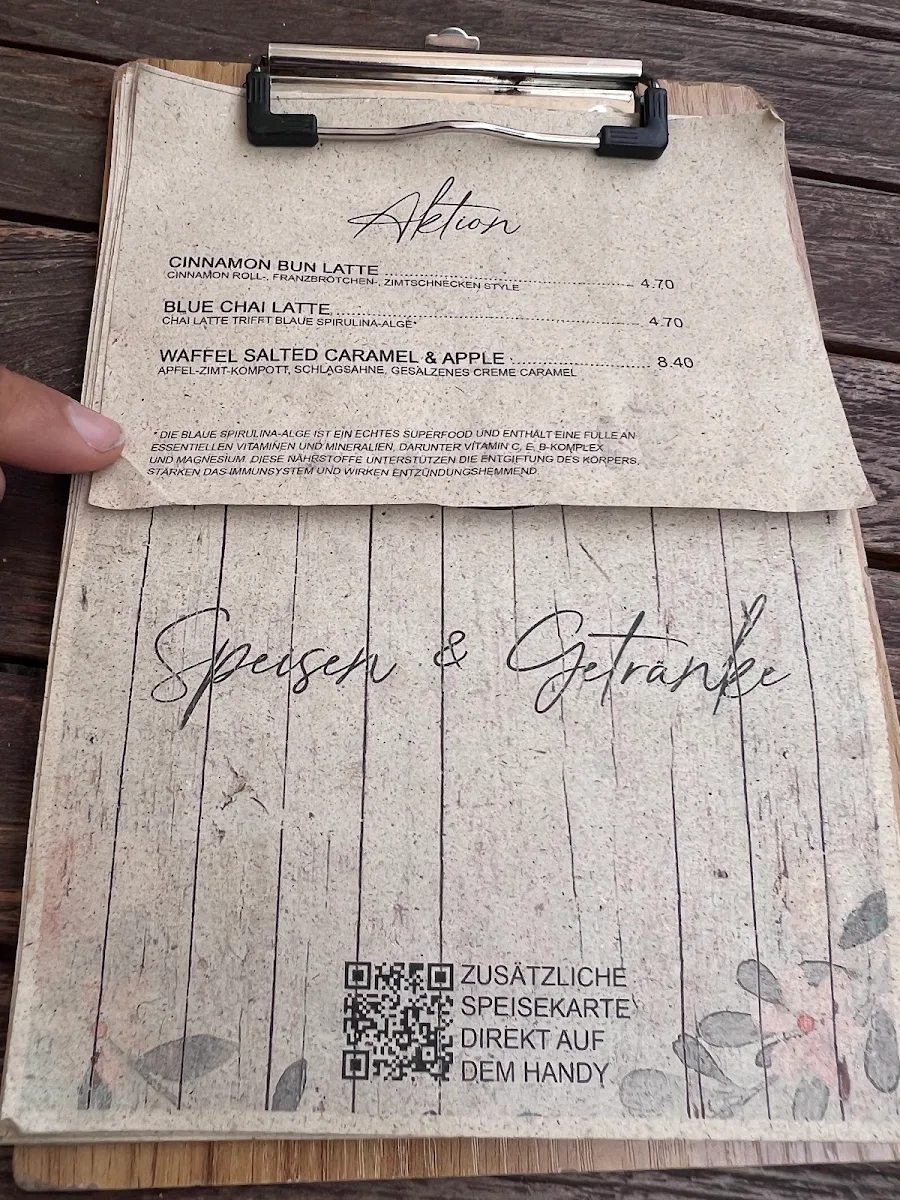 Aktion
CINNAMON BUN LATTE ........ 4.70
CINNAMON ROLL-, FRANZBRÖTCHEN-, ZIMTSCHNECKEN STYLE
BLUE CHAI LATTE ........ 4.70
CHAI LATTE TRIFFT BLAUE SPIRULINA-ALGE*
WAFFEL SALTED CARAMEL & APPLE ........ 8.40
APFEL-ZIMT-KOMPOTT, SCHLAGSAHNE, GESALZENES CREME CARAMEL
*DIE BLAUE SPIRULINA-ALGE IST EIN ECHTES SUPERFOOD UND ENTHÄLT EINE FÜLLE AN
ESSENTIELLEN VITAMINEN UND MINERALIEN, DARUNTER VITAMIN C, E, B-KOMPLEX
UND MAGNESIUM. DIESE NÄHRSTOFFE UNTERSTÜTZEN DIE ENTGIFTUNG DES KÖRPERS,
STÄRKEN DAS IMMUNSYSTEM UND WIRKEN ENTZÜNDUNGSHEMMEND.
Speisen & Getränke
ZUSÄTZLICHE
SPEISEKARTE
DIREKT AUF
DEM HANDY